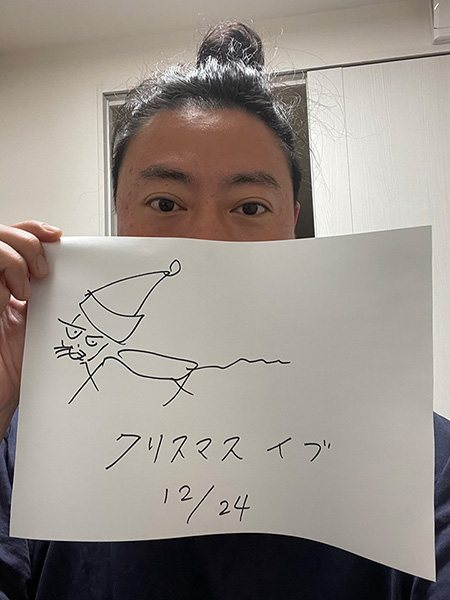 クリスマス イブ
12/24